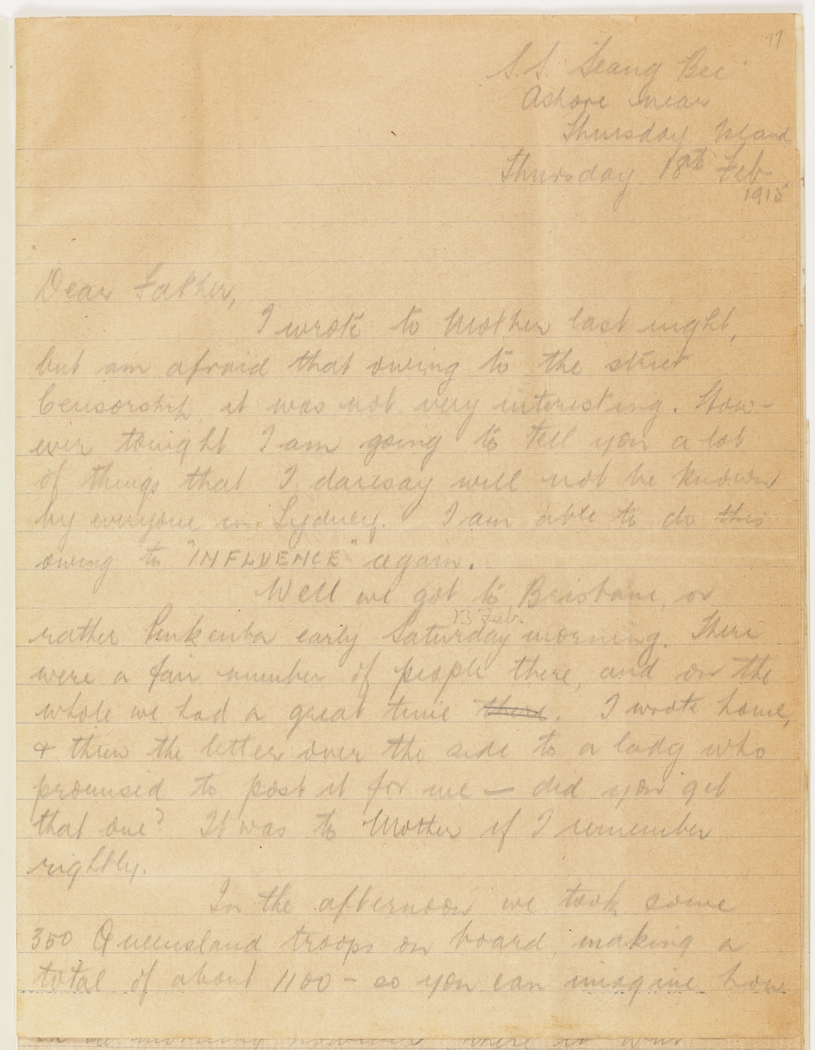 77
S.S. "Seang Bee"
Ashore near
Thursday Island
Thursday 18th Feb
1915
Dear Father,
I wrote to Mother last night,
but am afraid that owing to the strict
Censorship, it was not very interesting. How-
ever tonight I am going to tell you a lot
of things that I daresay will not be known
by everyone in Sydney. I am able to do this
owing to "INFLUENCE" again.
Well we got to Brisbane, or
13 Feb.
rather Pinkenba early Saturday morning. There
were a fair number of people there, and on the
whole we had a great time there. I wrote home,
& threw the letter over the side to a lady who
promised to post it for me — did you get
that one? It was to Mother if I remember
rightly.
In the afternoon we took some
350 Queensland troops on board, making a
total of about 1100 - so you can imagine how